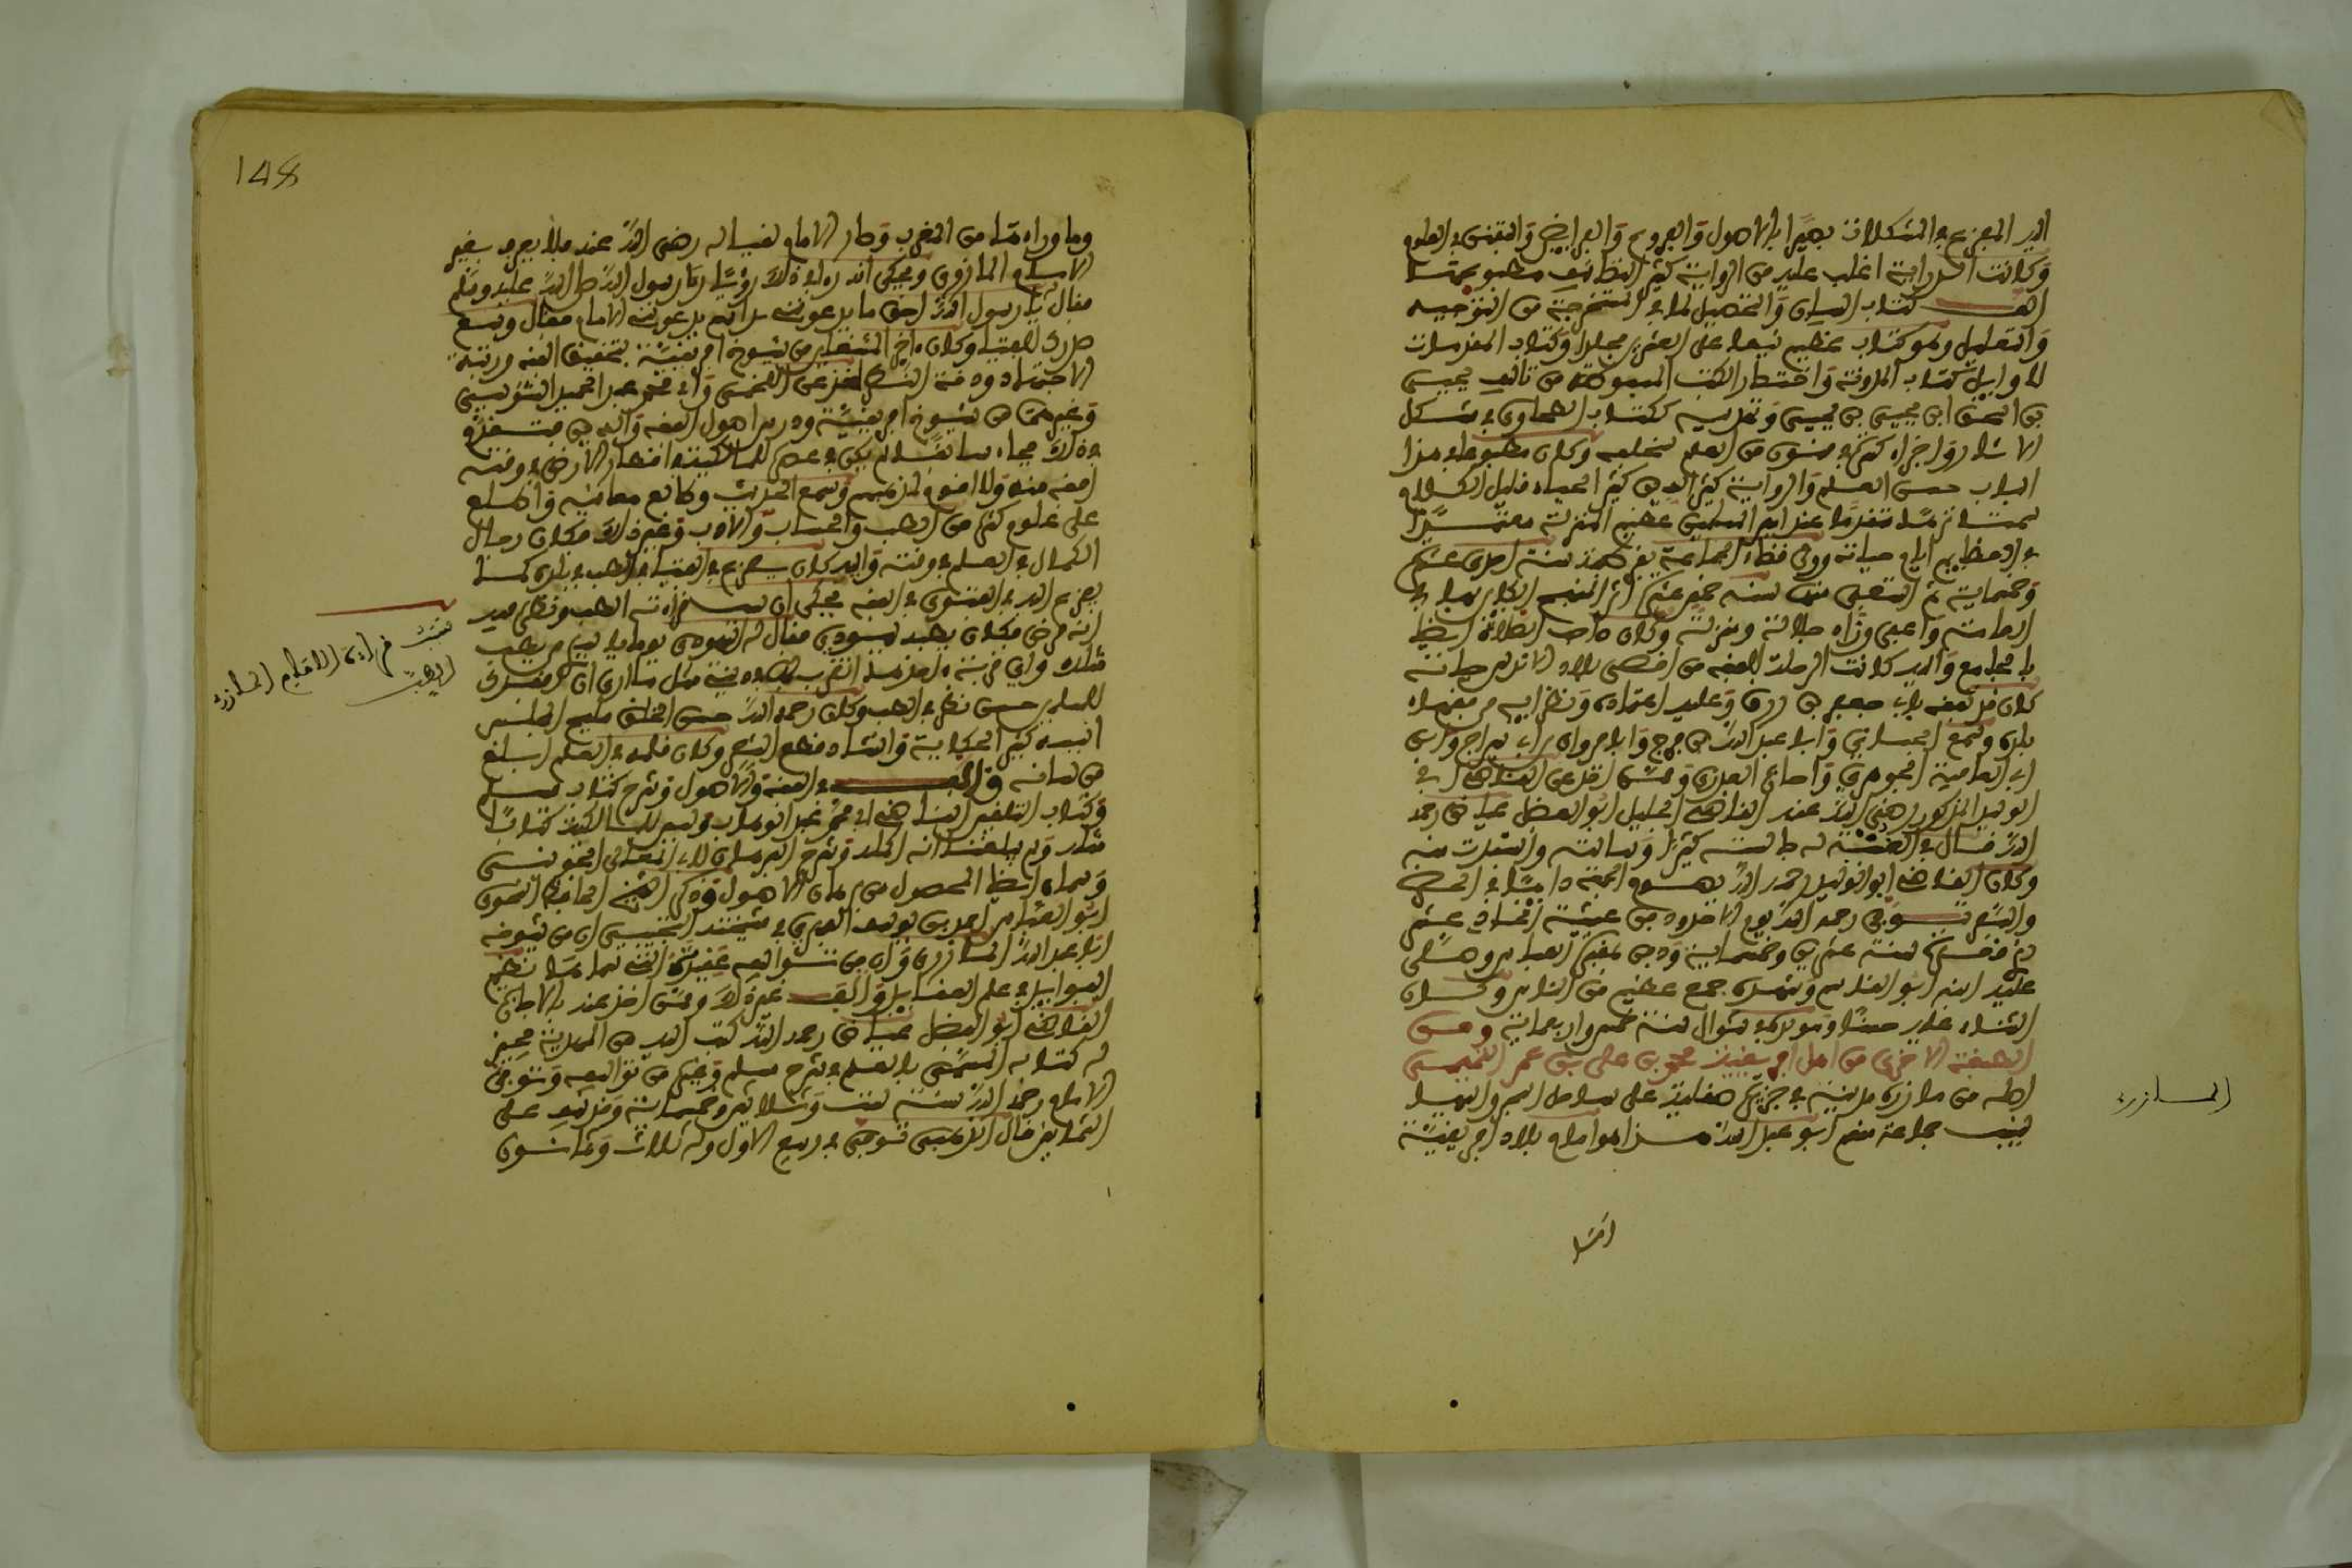 اليه المفزع في المشكلات بصيرا بالاصول والفروع والفرايض والتفنن في العلوم
وكانت الدراية اغلب عليه من الرواية كثير التصانيف مطبوعها
الف كتاب البيان والتحصيل لما في المستخرجة من التوجيه
والتعليل وهو كتاب عظيم نيف على العشرين مجلدا وكتاب المقدمات
لاوايل كتاب المدونة واختصار الكتب المبسوطة من تاليف يحيى
بن اسحق ابن يحيى بن يحيى وتهذيبه لكتاب الطحاوي في مشكل
الاثار واجزاء كثيرة في فنون من العلم مختلفه وكان مطبوعا في هذا
الباب حسن العلم والرواية كثير الدين كثير الحياء قليل الكلام
سمتا نزها مقدما عند امير المسلمين عظيم المنزلة معتمدا
في العظايم ايام حياته وولي قضاء الجماعة بقرطبة سنة احدى عشرة
وخمسماية ثم استعفى منها سنة خمس عشرة اثر الهيج الكاين بها في
العامة واعفي وزاد جلالة ومنزلة وكان صاحب الصلاة ايضا
بالجامع واليه كانت الرحلة للتفقه من اقصى بلاد الاندلس حياته
كان قد تفقه بابي جعفر بن رزق وعليه اعتماده ونظرايه من فقهاء
بلده وسمع الجياني وابا عبد الله بن فرج وابا مروان بن سراج وابن
ابي العافية الجوهري واجازه العذري وممن اخذ عن القاضي ابي
الوليد المذكور رضي الله عنه القاضي الجليل ابو الفضل عياض رحمه
الله قال في الغنية له جالسته كثيرا وسايلته واستفدت منه
وكان القاضي ابو الوليد رحمه الله يصوم الجمعة دايما في الحضر
والسفر توفي رحمه الله يوم الاحد ودفن عشية الحادي عشر
ذي قعدة سنة عشرين وخمسماية ودفن بمقبرة العباس وصلى
عليه ابنه ابو القاسم وشهده جمع عظيم من الناس وكان
الثناء عليه حسنا ومولده في شوال سنة خمس واربعماية ومن
الطبقة الاخرى من اهل افريقية محمد بن علي بن عمر التميمي
اصله من مازر مدينة في جزيرة صقلية على ساحل البحر واليها
نسب جماعة منهم ابو عبد الله هذا امام بلاد افريقية
المازري
148
وما وراءها من المغرب وصار الامام لقبا له رضي الله عنه فلا يعرف بغير
الامام المازري ويحكى انه راى في ذلك رؤيا راى رسول الله صلى الله عليه وسلم
فقال يا رسول الله احق ما يدعونني به انهم يدعونني الامام فقال وسع
صدرك للفتيا وكان اخر المشتغلين من شيوخ افريقية بتحقيق الفقه ورتبة
الاجتهاد ودقة النظر اخذ عن اللخمي وابي محمد عبد الحميد السوسي
وغيرهما من شيوخ افريقية ودرس اصول الفقه والدين وتقدم
في ذلك فجاء سابقا لم يكن في عصره للمالكية في اقطار الارض في وقته
افقه منه ولا اقوم لمذهبهم وسمع الحديث وطالع معانيه واطلع
على علوم كثيرة من الطب والحساب والاداب وغير ذلك فكان رجال
الكمال في العلم في وقته واليه كان يفزع في الفتيا في الطب في بلده كما
يفزع اليه في الفتوى في الفقه يحكى ان سبب قراءته الطب ونظره فيه
انه مرض فكان يطبه يهودي فقال له اليهودي يوما يا سيدي مثلي يطب
مثلك واي قربة اجدها اتقرب بها في ديني مثل ان افقدك
للمسلمين فمن حينئذ نظر في الطب وكان رحمه الله حسن الخلق مليح المجلس
انيسه كثير الحكاية وانشاد قطع الشعر وكان قلمه في العلم ابلغ
من لسانه والف في الفقه والاصول وشرح كتاب مسلم
وكتاب التلقين للقاضي ابي محمد عبد الوهاب وليس للمالكية كتاب
مثله ولم يبلغنا انه اكمله وشرح البرهان لابي المعالي الجويني
وسماه ايضاح المحصول من برهان الاصول وذكر الشيخ الحافظ النحوي
ابو العباس احمد بن يوسف الفهري في مشيخته التجيبي ان من شيوخه
ابا عبد الله المازري وان من تواليفه عقيدته التي سماها نظم
الفوايد في علم العقايد والف غير ذلك وممن اخذ عنه بالاجازة
القاضي ابو الفضل عياض رحمه الله كتب اليه من المهدية يجيز
له كتابه المسمى بالمعلم في شرح مسلم وغيره من تواليفه وتوفي
الامام رحمه الله سنة ست وثلاثين وخمسماية وقد نيف على
الثمانين قال الذهبي توفي في ربيع الاول وله ثلاث وثمانون
سبب قراءة الامام المازري
الطب